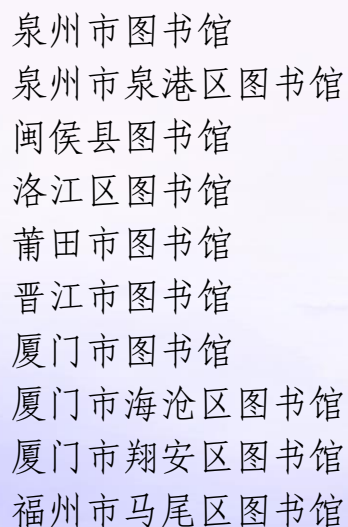 泉州市图书馆
泉州市泉港区图书馆
闽侯县图书馆
洛江区图书馆
莆田市图书馆
晋江市图书馆
厦门市图书馆
厦门市海沧区图书馆
厦门市翔安区图书馆
福州市马尾区图书馆